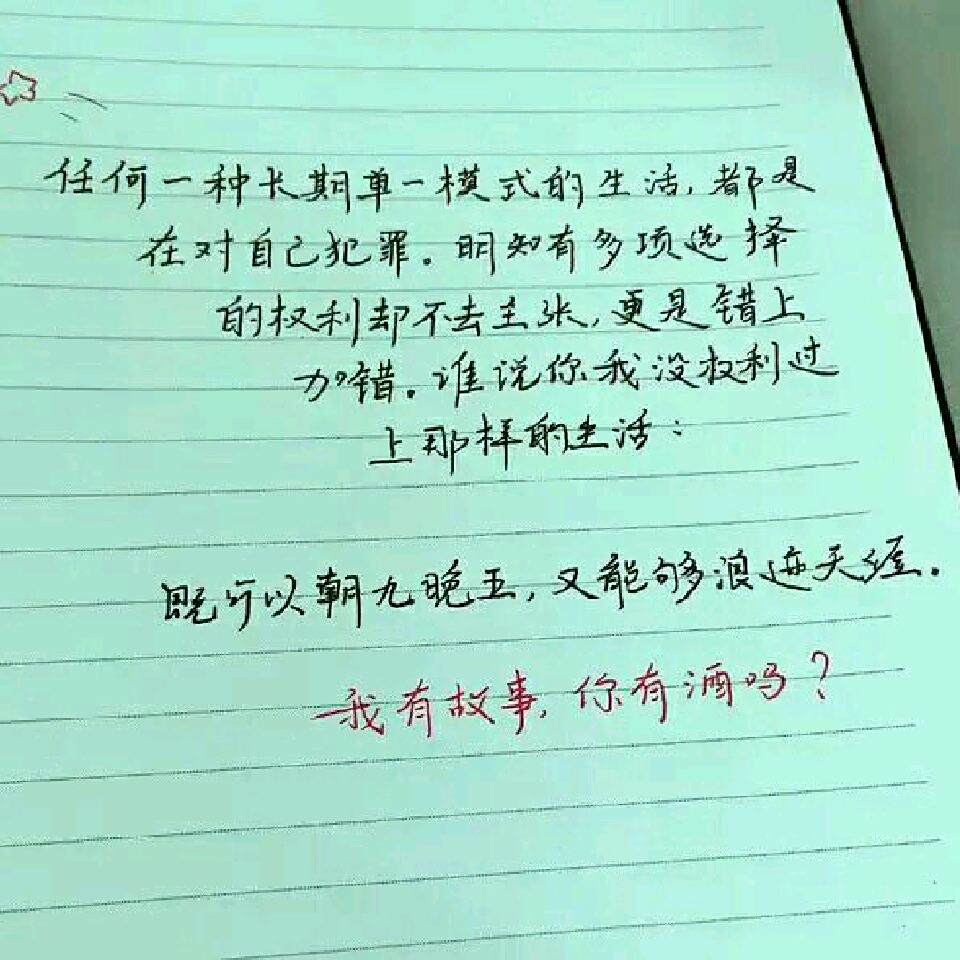 任何一种长期单一模式的生活,都是
在对自己犯罪。明知有多项选择
的权利却不去主张,更是错上
加错。谁说你我没权利过
上那样的生活:
既可以朝九晚五,又能够浪迹天涯。
我有故事,你有酒吗?